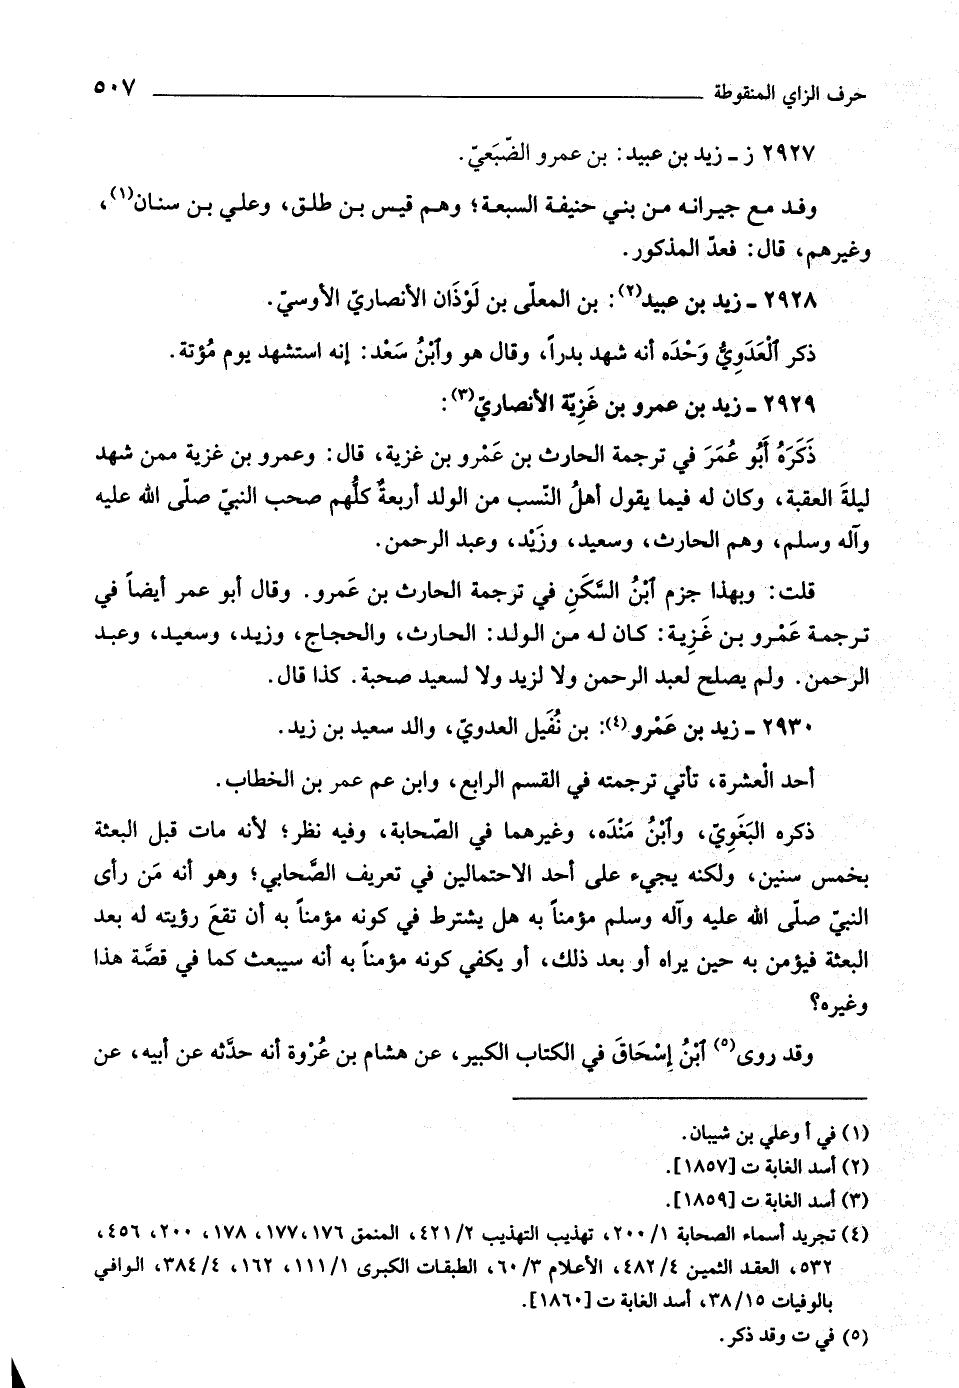 حرف الزاي المنقوطة ٥٠٧
٢٩٢٧ ز ـ زيد بن عبيد: بن عمرو الضّبَعيّ.
وفد مع جيرانه من بني حنيفة السبعة؛ وهم قيس بن طلق، وعلي بن سنان(١)،
وغيرهم، قال: فعدّ المذكور.
٢٩٢٨ ـ زيد بن عبيد(٢): بن المعلّى بن لَوْذَان الأنصاريّ الأوسيّ.
ذكر ٱلْعَدَوِيُّ وَحْدَه أنه شهد بدراً، وقال هو وٱبْنُ سَعْد: إنه استشهد يوم مُؤتة.
٢٩٢٩ ـ زيد بن عمرو بن غَزِيّة الأنصاريّ(٣):
ذَكَرَهُ أَبُو عُمَرَ في ترجمة الحارث بن عَمْرو بن غزية، قال: وعمرو بن غزية ممن شهد
ليلةَ العقبة، وكان له فيما يقول أهلُ النّسب من الولد أربعةٌ كلُّهم صحب النبيّ صلّى الله عليه
وآله وسلم، وهم الحارث، وسعيد، وزَيْد، وعبد الرحمن.
قلت: وبهذا جزم ٱبْنُ السَّكَنِ في ترجمة الحارث بن عَمرو. وقال أبو عمر أيضاً في
ترجمة عَمْرو بن غَزِية: كان له من الولد: الحارث، والحجاج، وزيد، وسعيد، وعبد
الرحمن. ولم يصلح لعبد الرحمن ولا لزيد ولا لسعيد صحبة. كذا قال.
٢٩٣٠ ـ زيد بن عَمْرو (٤): بن نُفَيل العدويّ، والد سعيد بن زيد.
أحد الْعشرة، تأتي ترجمته في القسم الرابع، وابن عم عمر بن الخطاب.
ذكره البَغَوِيّ، وٱبْنُ مَنْدَه، وغيرهما في الصّحابة، وفيه نظر؛ لأنه مات قبل البعثة
بخمس سنين، ولكنه يجيء على أحد الاحتمالين في تعريف الصَّحابي؛ وهو أنه مَن رأى
النبيّ صلّى الله عليه وآله وسلم مؤمناً به هل يشترط في كونه مؤمناً به أن تقعَ رؤيته له بعد
البعثة فيؤمن به حين يراه أو بعد ذلك، أو يكفي كونه مؤمناً به أنه سيبعث كما في قصَّة هذا
وغيره؟
وقد روى(٥) ٱبْنُ إِسْحَاقَ في الكتاب الكبير، عن هشام بن عُرْوة أنه حدَّثه عن أبيه، عن
(١) في أ وعلي بن شيبان.
(٢) أسد الغابة ت [١٨٥٧].
(٣) أسد الغابة ت [١٨٥٩].
(٤) تجريد أسماء الصحابة ١/ ٢٠٠، تهذيب التهذيب ٢/ ٤٢١، المنمق ١٧٦، ١٧٧، ١٧٨، ٢٠٠، ٤٥٦،
٥٣٢، العقد الثمين ٤/ ٤٨٢، الأعلام ٣/ ٦٠، الطبقات الكبرى ١/ ١١١، ١٦٢، ٤/ ٣٨٤، الوافي
بالوفيات ١٥/ ٣٨، أسد الغابة ت [١٨٦٠].
(٥) في ت وقد ذكر.